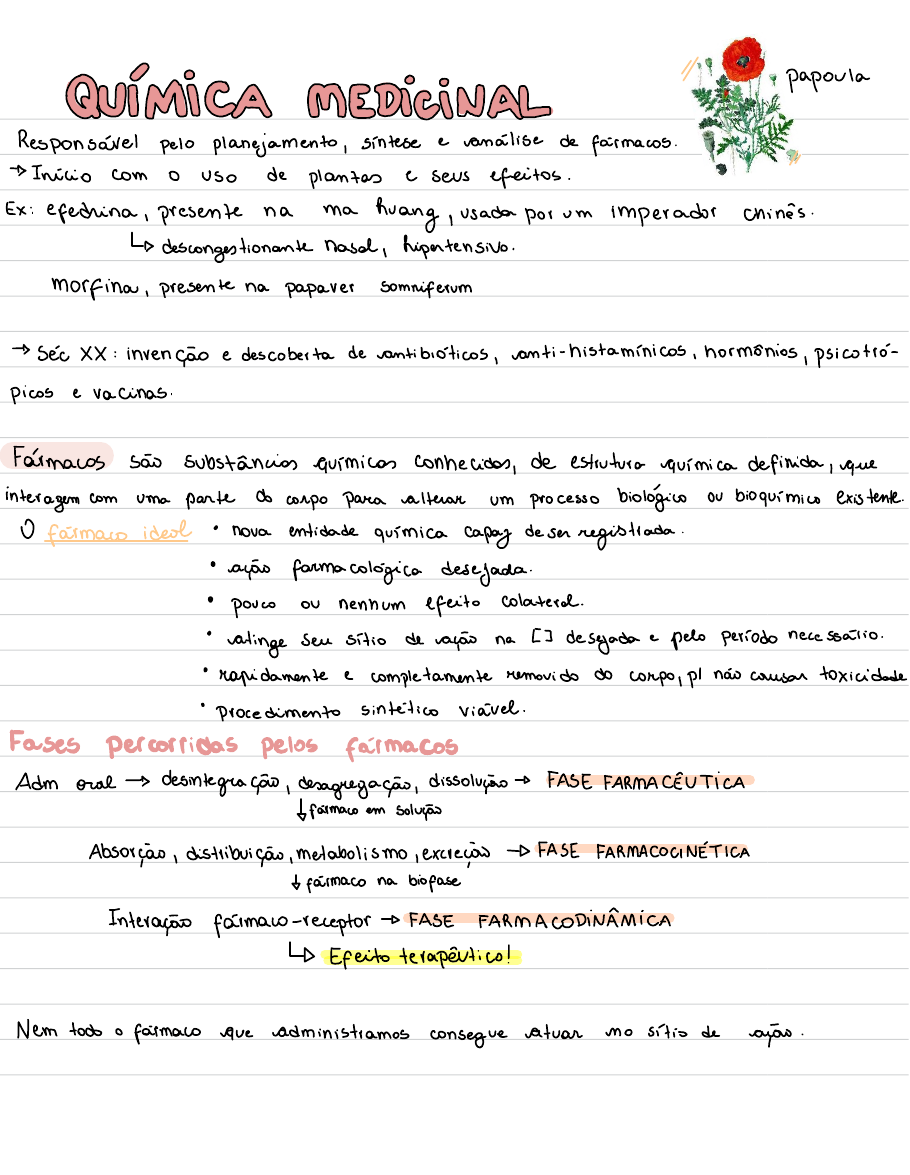 QUÍMICA MEDICINAL
papoula
Responsável pelo planejamento, síntese e análise de fármacos.
→ Início com o uso de plantas e seus efeitos.
Ex: efedrina, presente na ma huang, usada por um imperador chinês.
↳ descongestionante nasal, hipertensivo.
morfina, presente na papaver somniferum
→ Séc XX: invenção e descoberta de antibióticos, anti-histamínicos, hormônios, psicotró-
picos e vacinas.
Fármacos são substâncias químicas conhecidas, de estrutura química definida, que
interagem com uma parte do corpo para alterar um processo biológico ou bioquímico existente.
O fármaco ideal • nova entidade química capaz de ser registrada.
• ação farmacológica desejada.
• pouco ou nenhum efeito colateral.
• atinge seu sítio de ação na [] desejada e pelo período necessário.
• rapidamente e completamente removido do corpo, p/ não causar toxicidade
• procedimento sintético viável.
Fases percorridas pelos fármacos
Adm oral → desintegração, desagregação, dissolução → FASE FARMACÊUTICA
↓ fármaco em solução
Absorção, distribuição, metabolismo, excreção → FASE FARMACOCINÉTICA
↓ fármaco na biofase
Interação fármaco-receptor → FASE FARMACODINÂMICA
↳ Efeito terapêutico!
Nem todo o fármaco que administramos consegue atuar no sítio de ação.